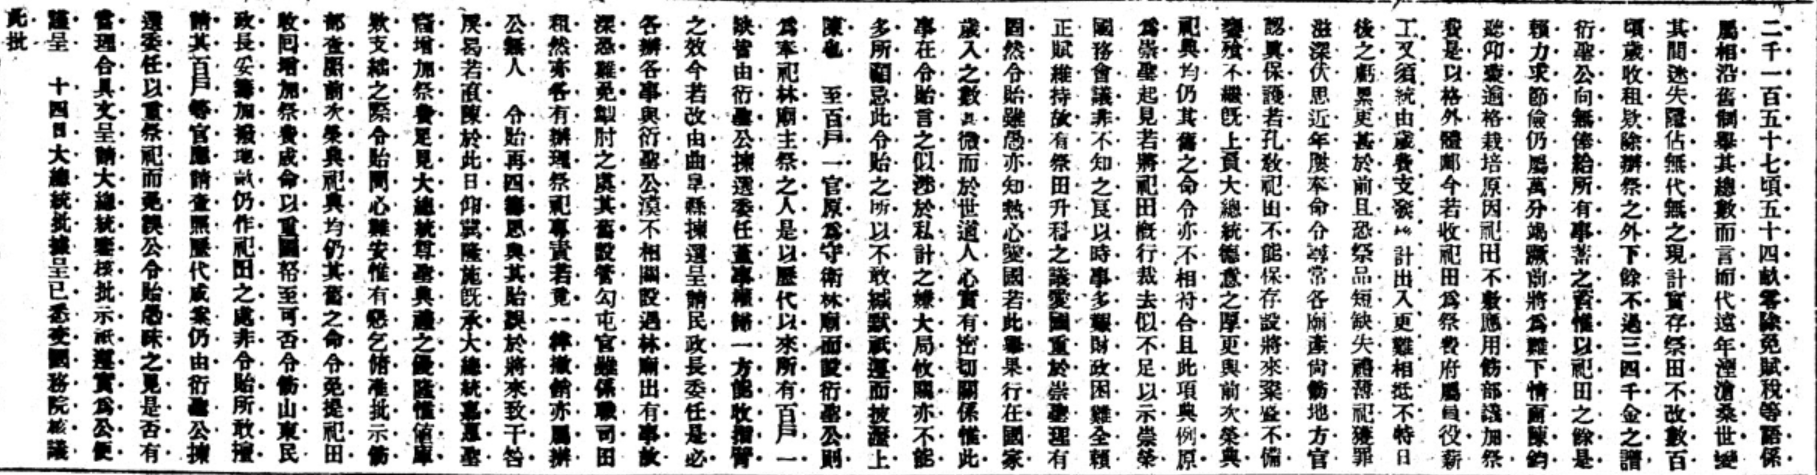 二千一百五十七頃五十四畝零除免賦稅等語係
屬相沿舊制舉其總數而言而代遠年湮滄桑世變
其間迷失隱佔無代無之現計實存祭田不敷數百
頃歲收租欵除辦祭之外下餘不過三四千金之譜
衍聖公向無俸給所有事蓄之資惟以祀田之餘是
賴力求節儉仍屬萬分竭蹶前將爲難下情面陳鈞
聽仰蒙逾格栽培原因祀田不敷應用飭部議加祭
費是以格外體卹今若收祀田爲祭費府屬員役薪
工又須統由歲費支發 計出入更難相抵不特日
後之虧累更甚於前且恐祭品短缺失禮薄祀獲罪
滋深伏思近年屢奉命令尋常各廟產尚飭地方官
認眞保護若孔敎祀田不能保存設將來粢盛不備
饔飱不繼旣上負大總統德意之厚更與前次榮典
祀典均仍其舊之命令亦不相符合且此項典例原
爲崇聖起見若將祀田槪行裁去似不足以示崇榮
國務會議非不知之良以時事多艱財政困難全賴
正賦維持故有祭田升科之議愛國重於崇聖理有
固然令貽雖愚亦知熱心愛國若此舉果行在國家
歲入之數甚微而於世道人心實有密切關係惟此
事在令貽言之似涉於私計之嫌大局攸關亦不能
多所顧忌此令貽之所以不敢緘默祇遵而披瀝上
陳也 至百戶一官原爲守衛林廟而設衍聖公則
爲奉祀林廟主祭之人是以歷代以來所有百戶一
缺皆由衍聖公揀選委任蓋事權歸一方能收指臂
之效今若改由曲阜縣揀選呈請民政長委任是必
各辦各事與衍聖公漠不相關設遇林廟出有事故
深恐難免掣肘之虞其舊設管勾屯官雖係職司田
租然亦各有辦理祭祀專責若竟一律撤銷亦屬辦
公無人 令貽再四籌思與其貽誤於將來致干咎
戾曷若直陳於此日仰蒙隆施旣承大總統嘉惠聖
裔增加祭費足見大總統尊聖典禮之優隆惟值庫
欵支絀之際令貽問心難安惟有懇乞俯准批示飭
部查照前次榮典祀典均仍其舊之命令免提祀田
收回增加祭費成命以重國帑至可否令飭山東民
政長妥籌加撥地畝仍作祀田之處非令貽所敢擅
請其百戶等官應請查照歷代成案仍由衍聖公揀
選委任以重祭祀而免誤公令貽愚昧之見是否有
當理合具文呈請大總統鑒核批示祇遵實爲公便
謹呈 十四日大總統批據呈已悉交國務院核議
此批